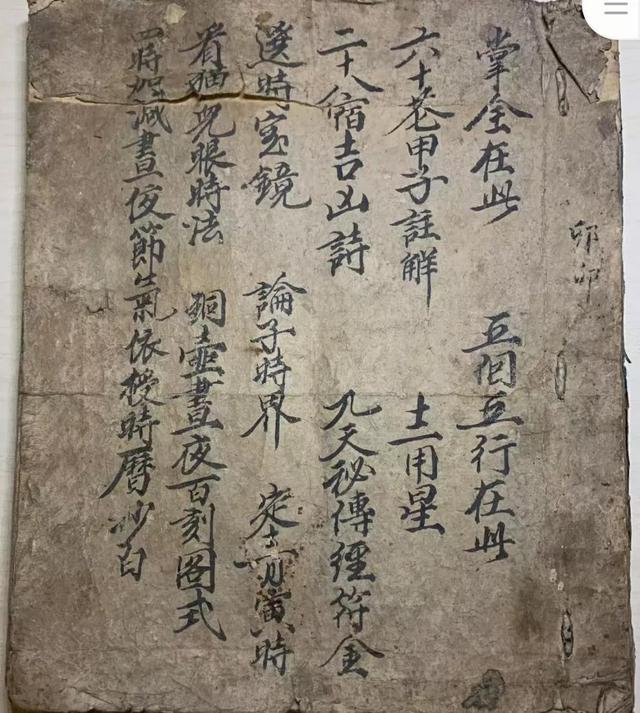 卯卯
掌全在此 五個五行在此
六十老甲子註解 土用星
二十八宿吉凶詩 九天秘傳經符金
選時宝鏡 論子時界 定十二月寅時
看猫兒眼時法 銅壺晝夜百刻图式
四時加減晝夜節氣依授時曆抄白